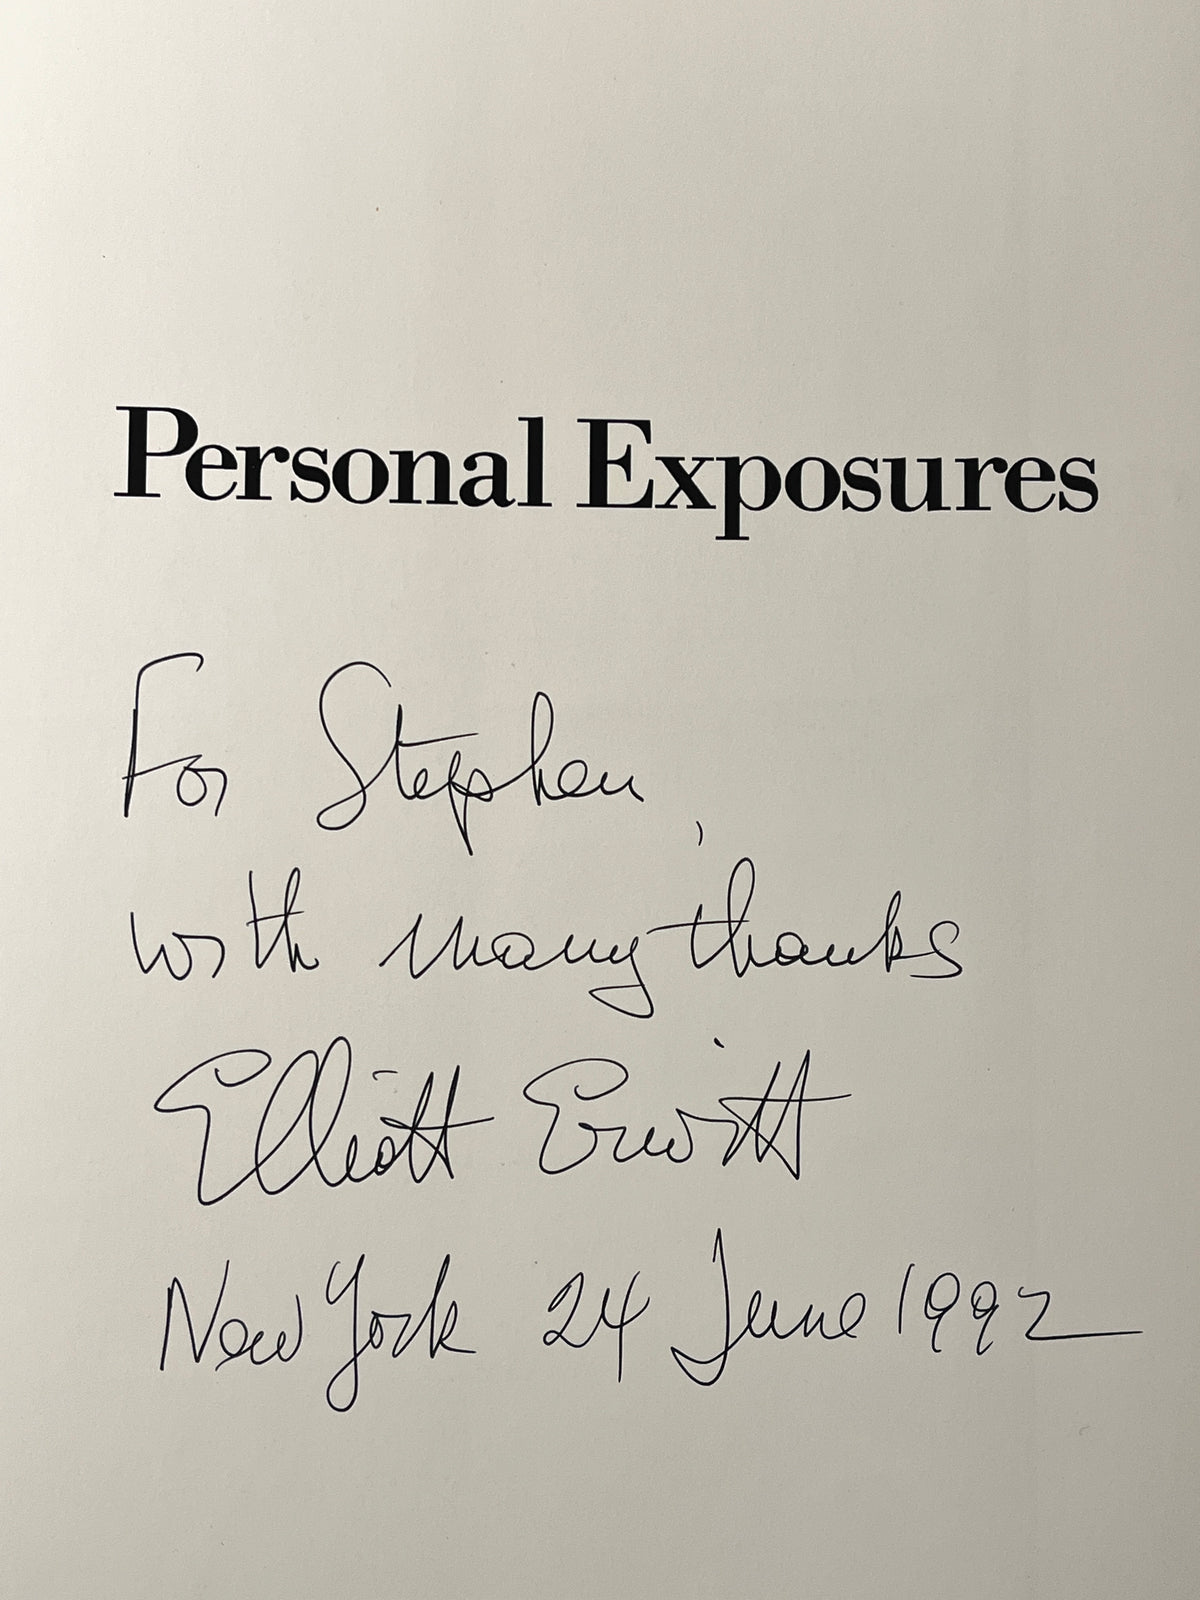 Personal Exposures
For Stephen,
with many thanks
Elliott Erwitt
New York 24 June 1992